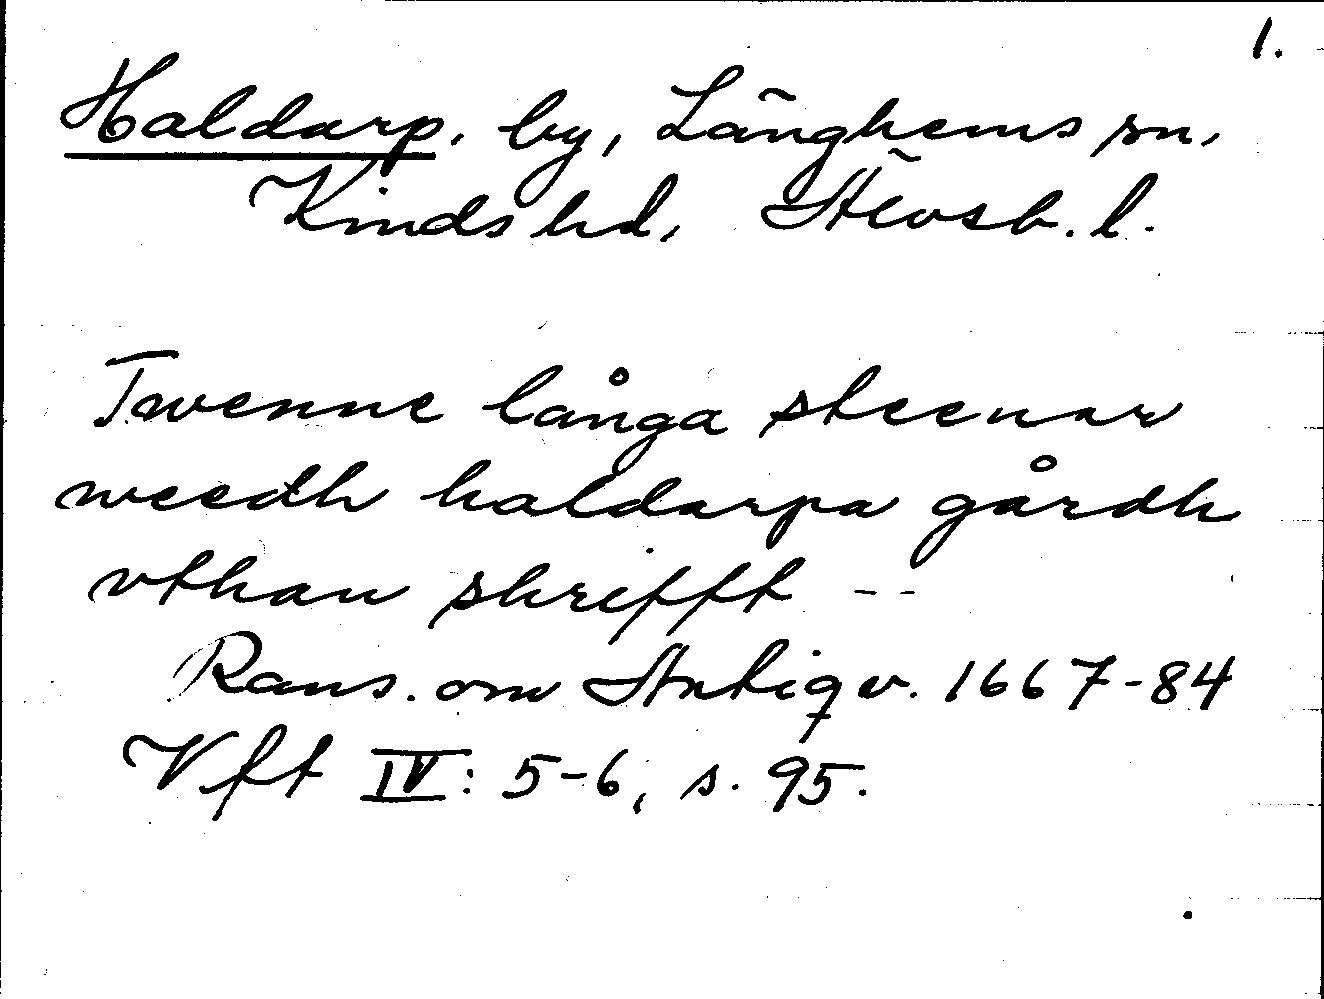 1.
Haldarp, by, Länghems sn,
Kinds hd, Älvsb. l.
Twenne långa steenar
weedh haldarpa gårdh
vthan skrifft --
Rans. om Antiqv. 1667-84
Vft IV: 5-6, s. 95.